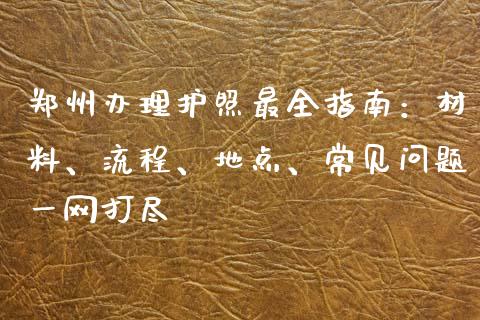 郑州办理护照最全指南：材
料、流程、地点、常见问题
一网打尽